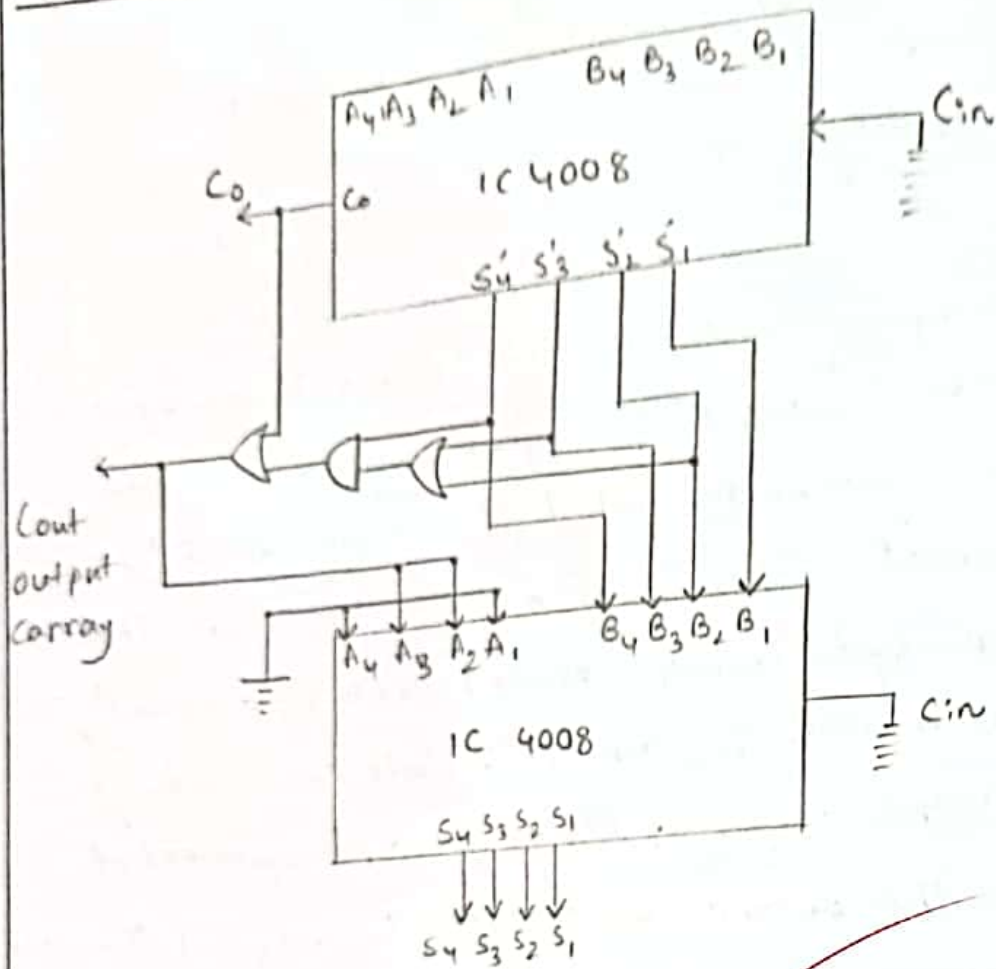 A4 A3 A2 A1 B4 B3 B2 B1
Cin
IC 4008
Co
Co
S'4 S'3 S'2 S'1
Cout
output
carray
A4 A3 A2 A1 B4 B3 B2 B1
Cin
IC 4008
S4 S3 S2 S1
S4 S3 S2 S1